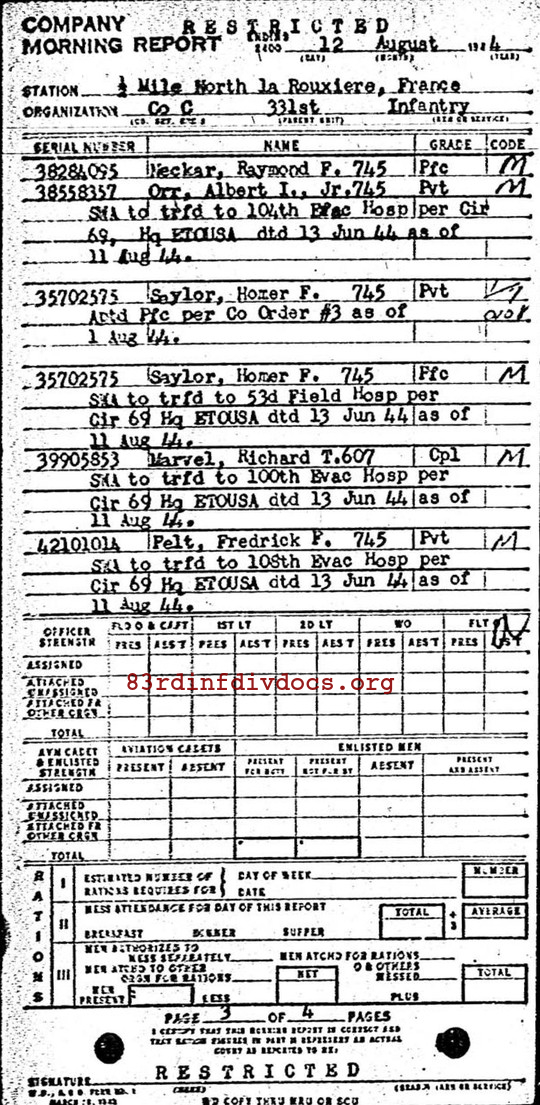 COMPANY RESTRICTED
MORNING REPORT ENDING 2400 12 August 1944
(DAY) (MONTH) (YEAR)
STATION ½ Mile North la Rouxiere, France
ORGANIZATION Co C 331st Infantry
(PARENT UNIT) (ARM OR SERVICE)
SERIAL NUMBER NAME GRADE CODE
38284095 Neckar, Raymond F. 745 Pfc M
38558357 Orr, Albert I., Jr.745 Pvt M
SWA to trfd to 104th Evac Hosp per Cir
69, Hq ETOUSA dtd 13 Jun 44 as of
11 Aug 44.
35702575 Saylor, Homer F. 745 Pvt
Aptd Pfc per Co Order #3 as of
1 Aug 44.
35702575 Saylor, Homer F. 745 Pfc M
SWA to trfd to 53d Field Hosp per
Cir 69 Hq ETOUSA dtd 13 Jun 44 as of
11 Aug 44.
39905853 Marvel, Richard T.607 Cpl M
SWA to trfd to 100th Evac Hosp per
Cir 69 Hq ETOUSA dtd 13 Jun 44 as of
11 Aug 44.
42101014 Pelt, Fredrick F. 745 Pvt M
SWA to trfd to 108th Evac Hosp per
Cir 69 Hq ETOUSA dtd 13 Jun 44 as of
11 Aug 44.
OFFICER STRENGTH FLD O & CAPT 1ST LT 2D LT WO FLT
PRES ABS'T PRES ABS'T PRES ABS'T PRES ABS'T PRES
ASSIGNED
ATTACHED UNASSIGNED
83rdinfdivdocs.org
ATTACHED FR OTHER ORGN
TOTAL
AVN CADET & ENLISTED STRENGTH AVIATION CADETS ENLISTED MEN
PRESENT ABSENT PRESENT FOR DUTY PRESENT NOT FOR DY ABSENT PRESENT AND ABSENT
ASSIGNED
ATTACHED UNASSIGNED
ATTACHED FR OTHER ORGN
TOTAL
RATIONS
I ESTIMATED NUMBER OF RATIONS REQUIRED FOR DAY OF WEEK DATE NUMBER
II MESS ATTENDANCE FOR DAY OF THIS REPORT TOTAL ÷ 3 AVERAGE
BREAKFAST DINNER SUPPER
III MEN AUTHORIZED TO MESS SEPARATELY MEN ATCHD FOR RATIONS
MEN ATCHD TO OTHER ORGN FOR RATIONS NET O & OTHERS MESSED TOTAL
MEN PRESENT LESS PLUS
PAGE 3 OF 4 PAGES
I CERTIFY THAT THIS MORNING REPORT IS CORRECT AND
RESTRICTED
SIGNATURE
(NAME) (GRADE) (ARM OR SERVICE)
W.D., A.G.O. FORM NO. 1
MARCH